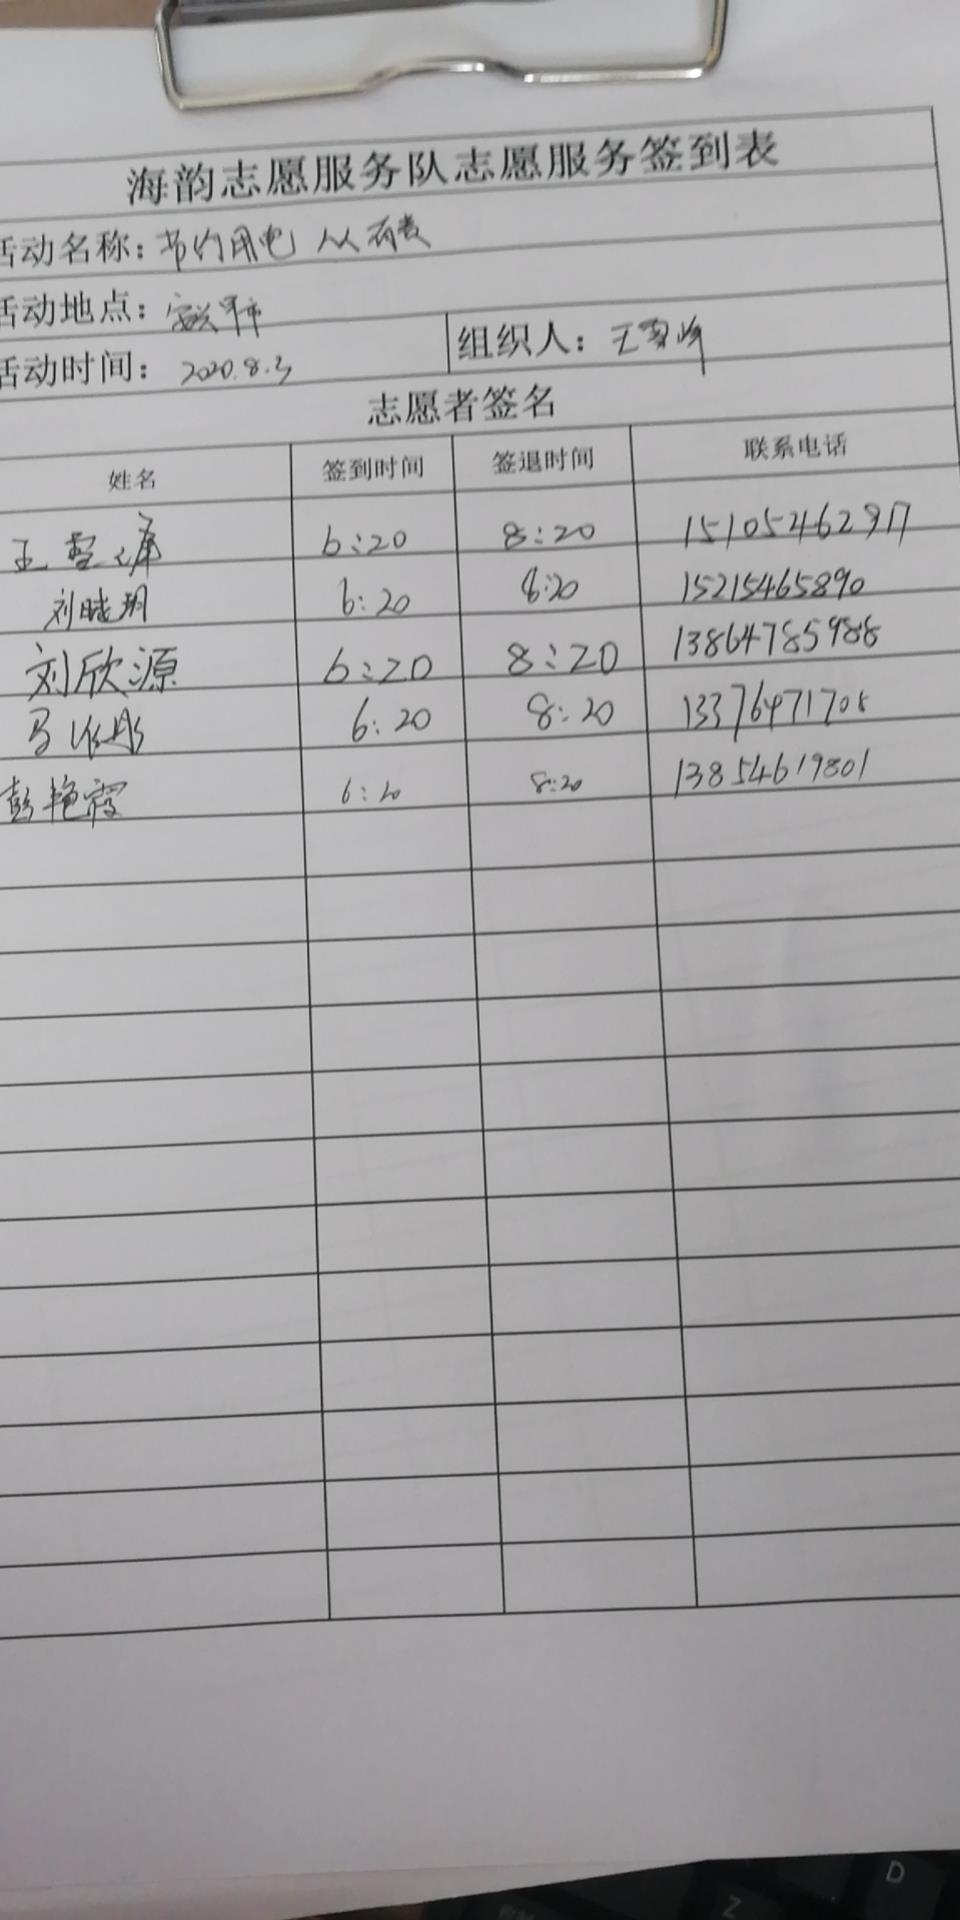 海韵志愿服务队志愿服务签到表
活动名称：节约用电 人人有责
活动地点：
活动时间：2020.8.3 组织人：王
志愿者签名
姓名 签到时间 签退时间 联系电话
王雪 6:20 8:20 15105462917
刘晓玥 6:20 8:20 15215465890
刘欣源 6:20 8:20 13864785988
马 彤 6:20 8:20 13376471708
彭艳霞 6:20 8:20 13854619801
D
Z